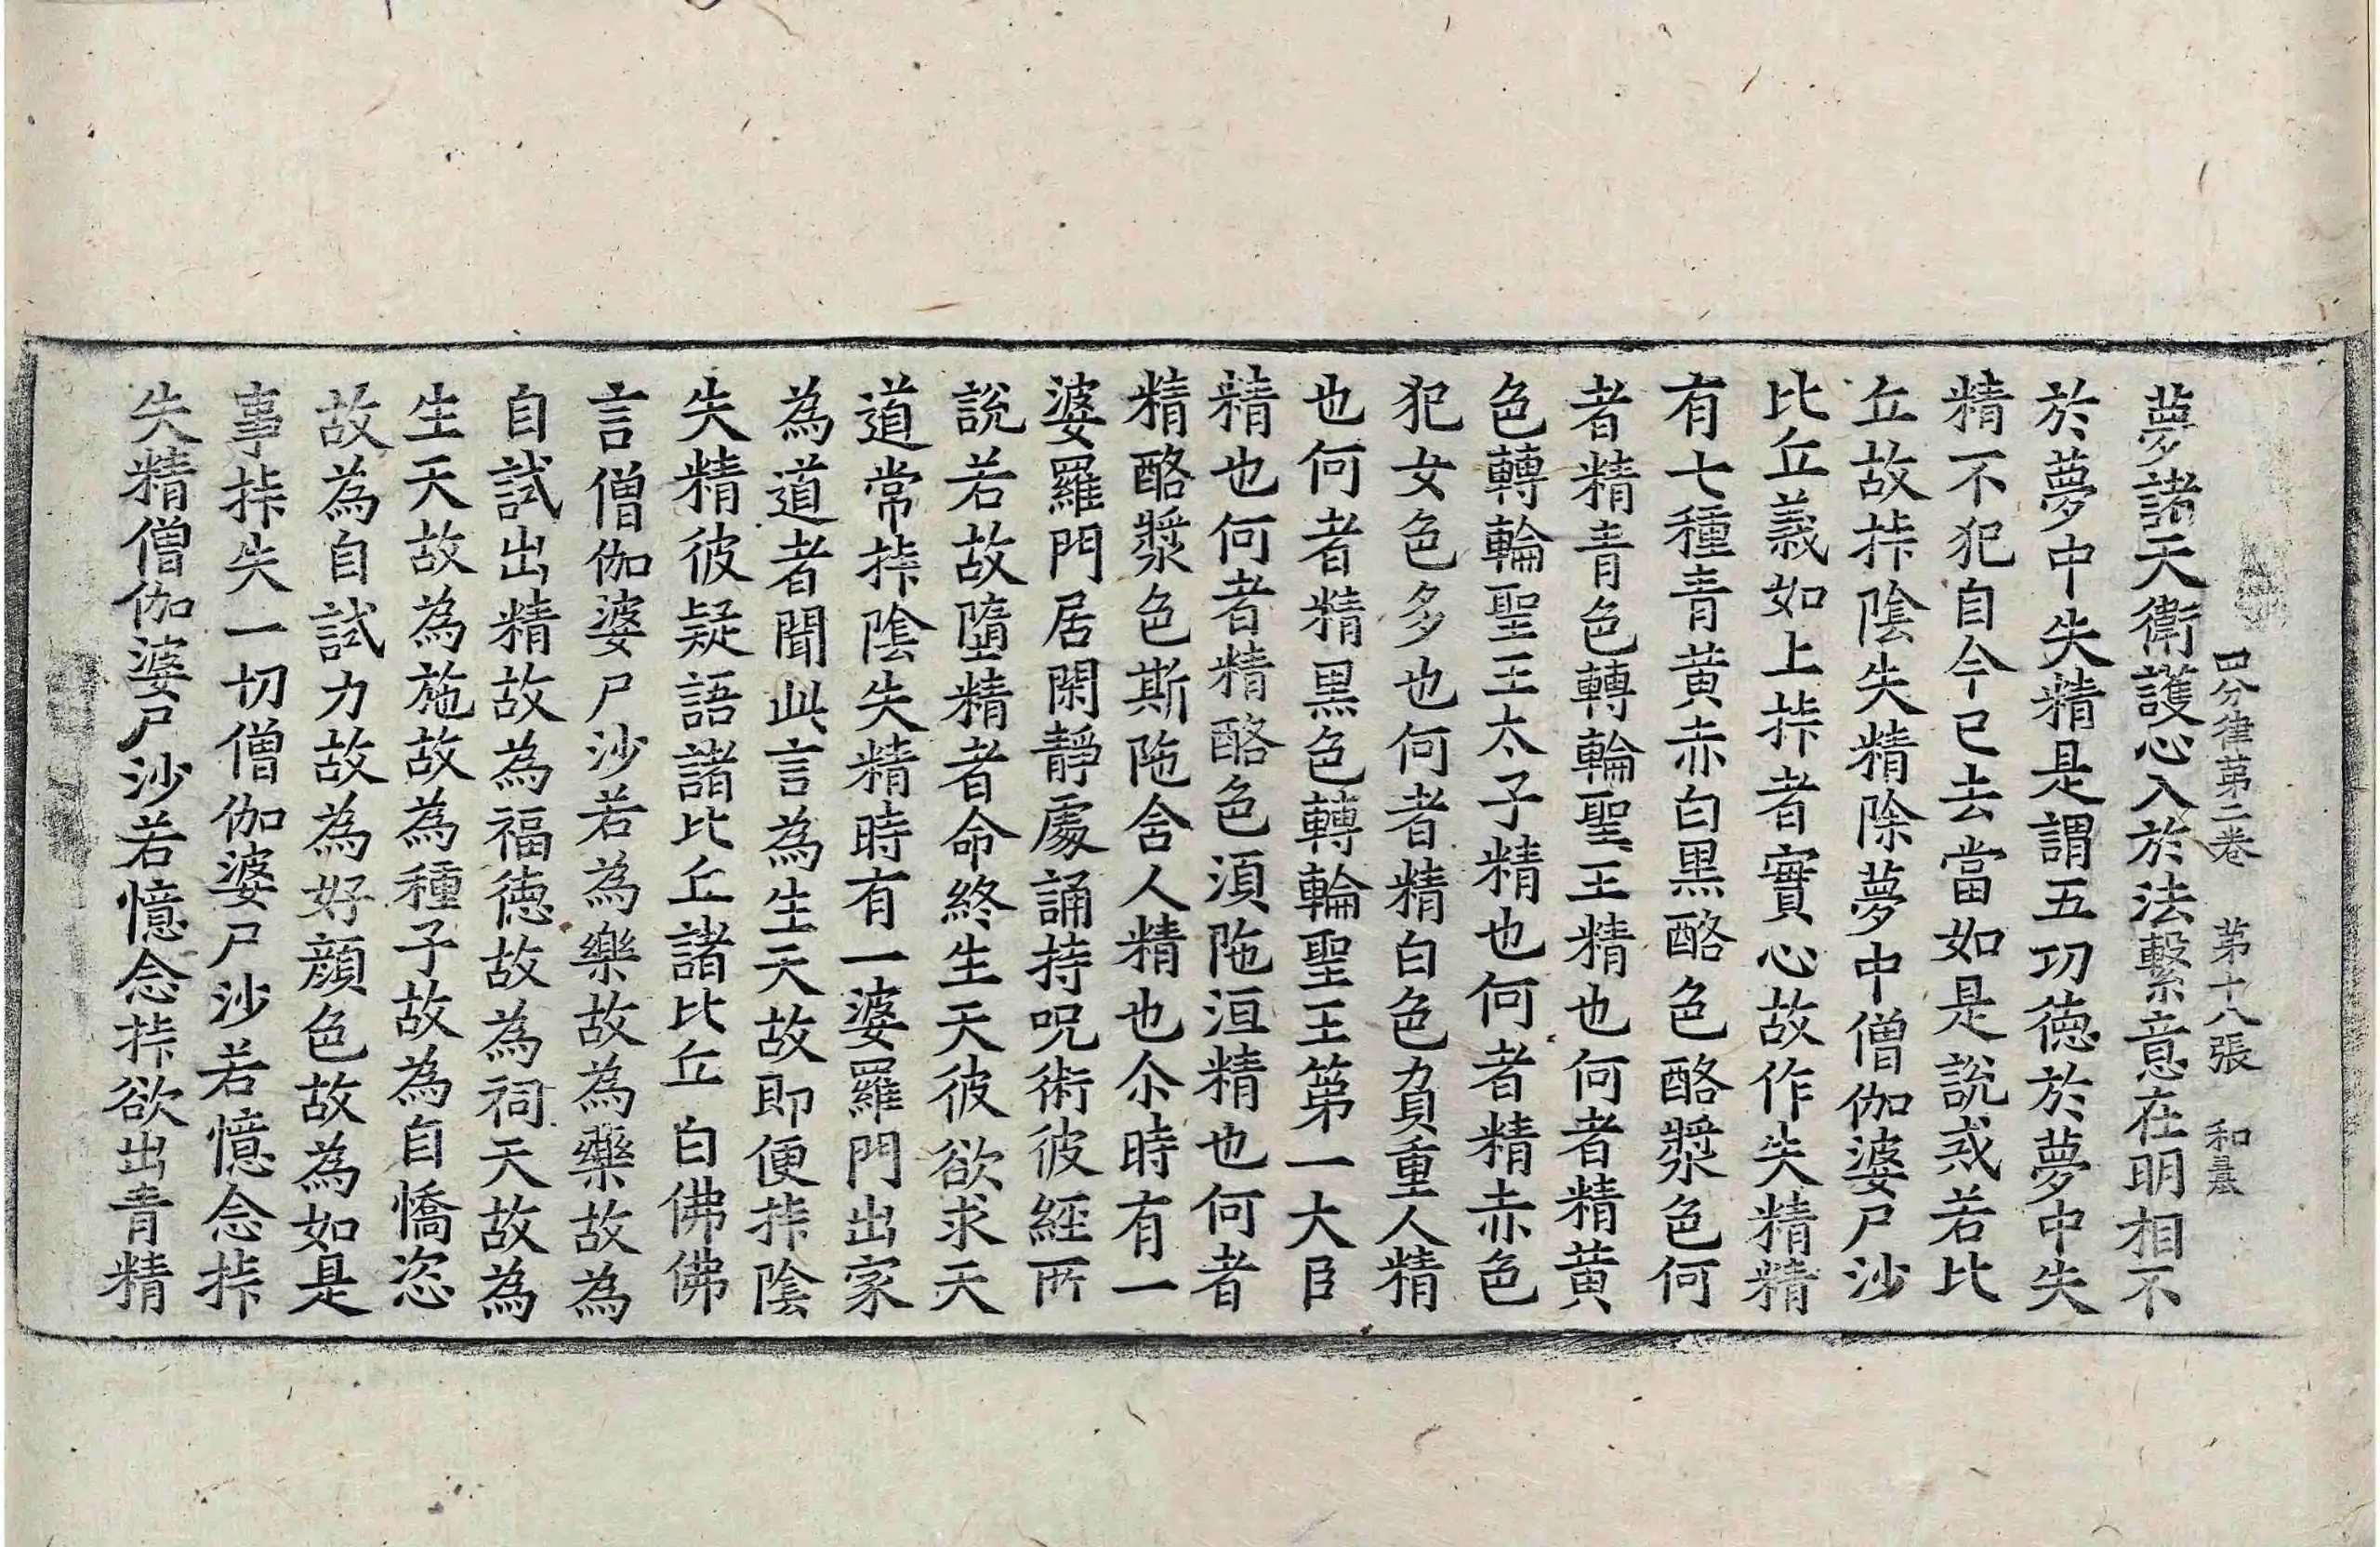 四分律第二卷 第十八張 和
夢諸天衛護心入於法繫意在明相不
於夢中失精是謂五功徳於夢中失
精不犯自今已去當如是說或若比
丘故挊陰失精除夢中僧伽婆尸沙
比丘義如上挊者實心故作失精精
有七種青黃赤白黑酪色酪漿色何
者精青色轉輪聖王精也何者精黃
色轉輪聖王太子精也何者精赤色
犯女色多也何者精白色負重人精
也何者精黑色轉輪聖王第一大臣
精也何者精酪色湏陁洹精也何者
精酪漿色斯陁含人精也尒時有一
婆羅門居閑靜處誦持呪術彼經所
說若故墮精者命終生天彼欲求天
道常挊陰失精時有一婆羅門出家
為道者聞此言為生天故即便挊陰
失精彼疑語諸比丘諸比丘白佛佛
言僧伽婆尸沙若為樂故為藥故為
自試出精故為福徳故為祠天故為
生天故為施故為種子故為自憍恣
故為自試力故為好顔色故為如是
事挊失一切僧伽婆尸沙若憶念挊
失精僧伽婆尸沙若憶念挊欲出青精